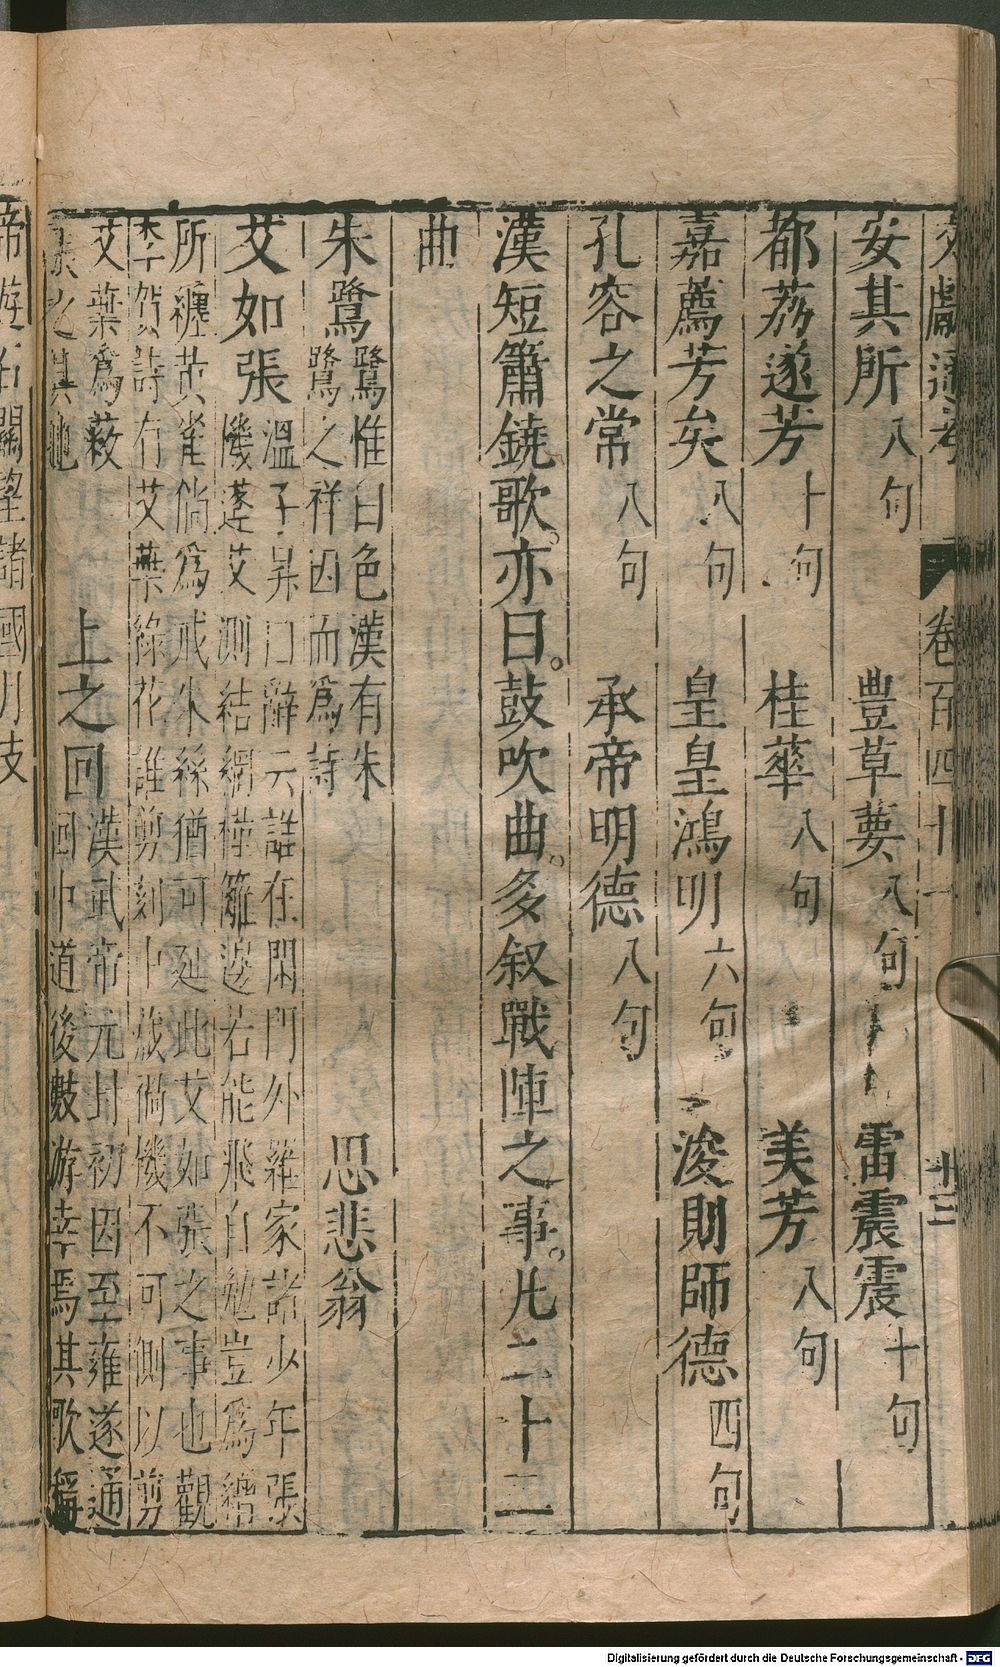 文獻通考 卷百四十一 十三
安其所八句 豊草葽八句 雷震震十句
都荔遂芳十句 桂華八句 美芳八句
嘉薦芳矣八句 皇皇鴻明六句 浚則師德四句
孔容之常八句 承帝明德八句
漢短簫鐃歌。亦曰。鼓吹曲。多叙戰陣之事。凡二十二
曲
朱鷺鷺惟白色漢有朱
鷺之祥因而爲詩 思悲翁
艾如張溫子昇辭云誰在閑門外羅家諸少年張
機蓬艾側結網槿籬邊若能飛自勉豈爲繒
所纏黃雀倘爲戒朱絲猶可延此艾如張之事也觀
李賀詩有艾葉綠花誰剪刻中藏禍機不可測以剪
艾葉爲蔽
張之具也 上之回漢武帝元封初因至雍遂通
回中道後數游幸焉其歌稱
帝游石關望諸國月支
Digitalisierung gefördert durch die Deutsche Forschungsgemeinschaft - DFG